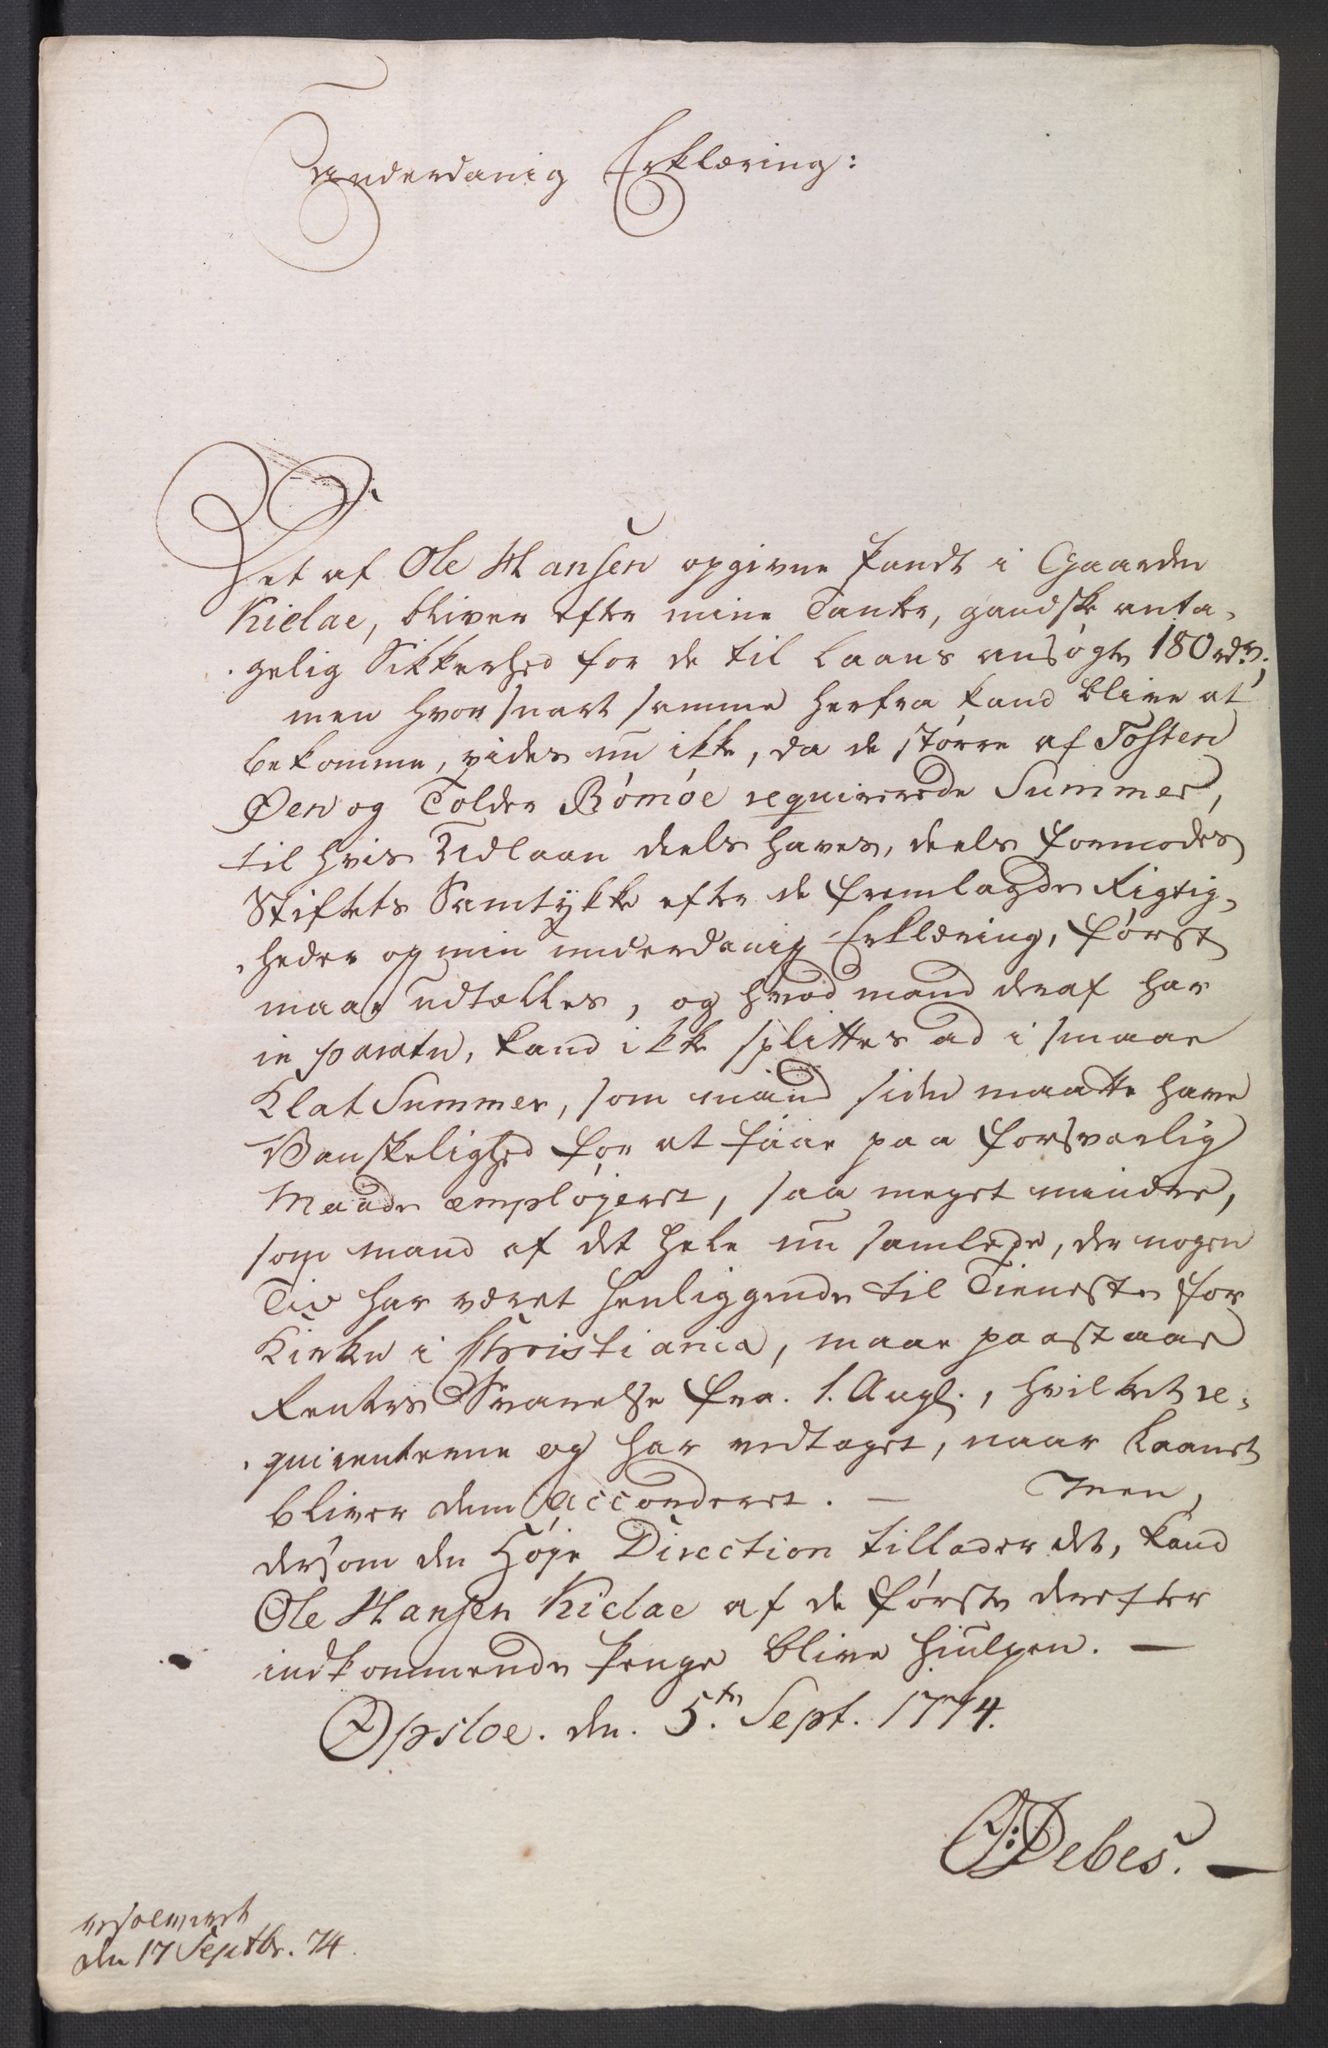 Underdanig Erklæring:
Det af Ole Hansen opgivne Pandt i Gaarden
Kielae, bliver efter mine Tanker, gandske anta-
gelig Sikkerhed for de til Laans ansøgte 180 rdr;
men hvor snart samme herfra kand blive at
bekomme, vides nu ikke, da de større af Tosten
Øen og Tolder Rømøe requirerede Summer,
til hvis Udlaan deels haves, deels formodes
Stiftets Samtykke efter de fremlagde Rigtig-
heder og min underdanig Erklæring, først
maae udtælles, og hvad mand deraf har
in parato, kand ikke splittes ad i smaae
Klat Summer, som mand siden maatte have
Vanskelighed for at faae paa forsvarlig
Maade emploÿeret, saa meget mindre,
som mand af det hele nu samlede, der nogen
Tid har været henliggende til Tieneste for
Kirken i Christiania, maae paastaae
Renters Svarelse fra 1. Aug., hvilket re-
quirenterne og har vedtaget, naar Laanet
bliver dem accorderet. — Men,
dersom den Høje Direction tillader det, kand
Ole Hansen Kielae af de første derefter
indkommende Penge blive hiulpen. —
Opsloe. den. 5.te Sept. 1774.
J: Debes. —
resolveret
den 17 Septbr. 74.